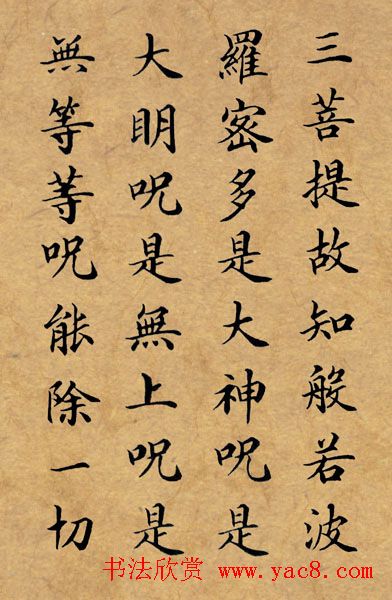 三菩提故知般若波
羅密多是大神呪是
大明呪是無上呪是
無等等呪能除一切
书法欣赏 www.yac8.com